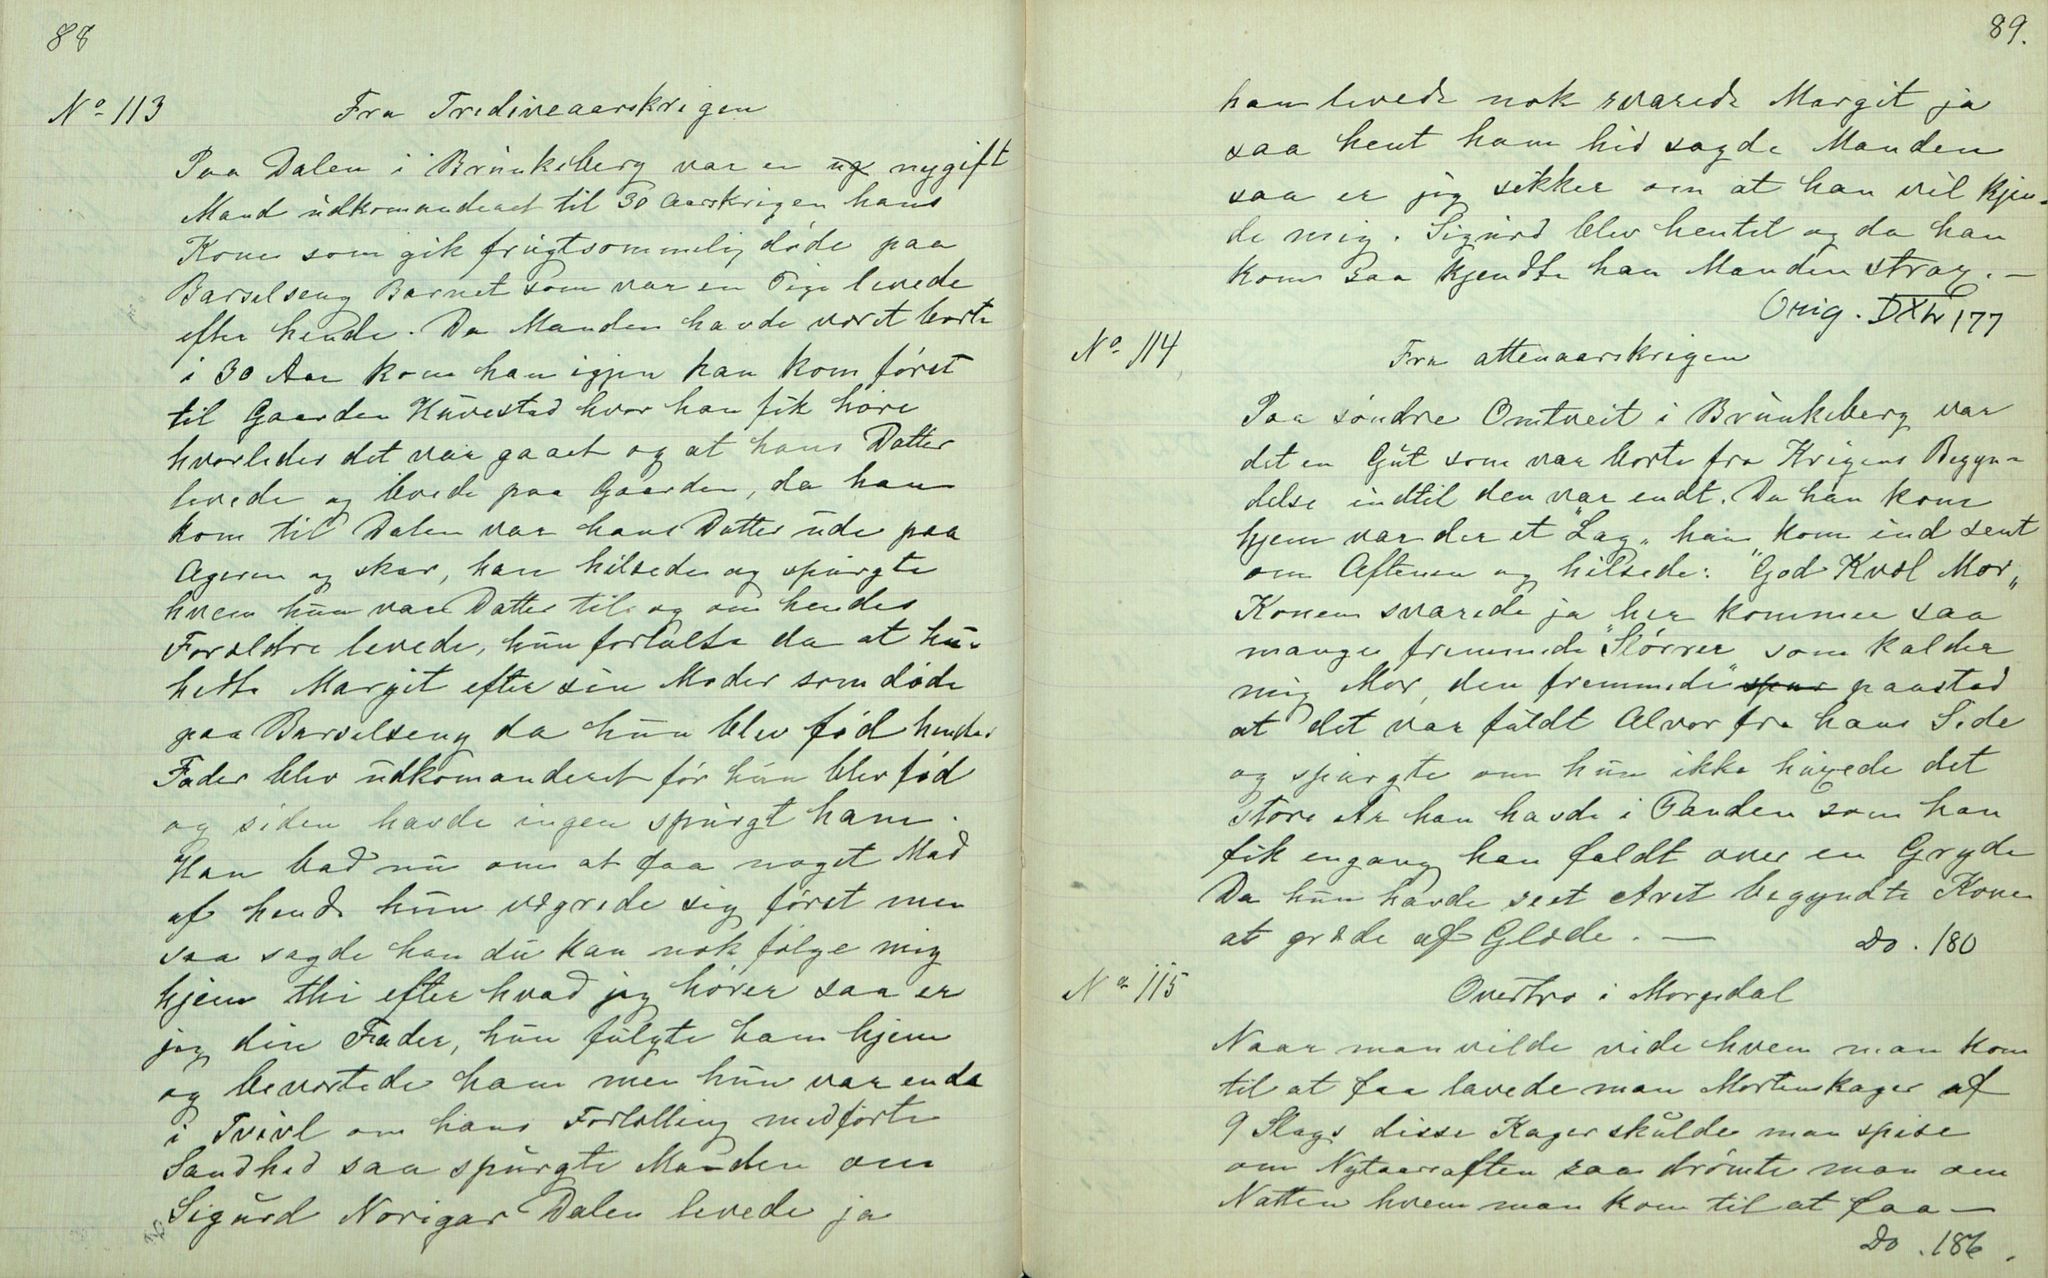 88
No 113 Fra Trediveaarskrigen
Paa Dalen i Brunkeberg var en nygift
Mand udkomanderet til 30 aarskrigen hans
Kone som gik frugtsommelig døde paa
Barselseng Barnet som var en Pige levede
efter hende. Da Manden havde været borte
i 30 Aar kom han igjen han kom først
til Gaarden Huvestad hvor han fik høre
hvorledes det var gaaet og at hans Datter
levede og levede paa Gaarden, da han
kom til Dalen var hans Datter ude paa
Ageren og skar, han hilsede og spurgte
hvem hun var Datter til og om hendes
Forældre levede, hun fortalte da at hu-
hette Margit efter sin Moder som døde
paa Barselseng da hun blev fød hendes
Fader blev udkomanderet før hun blev fød
og siden havde ingen spurgt ham.
Han bad nu om at faa noget Mad
af hende hun vægrede sig først men
saa sagde han du kan nok følge mig
hjem thi efter hvad jeg hører saa er
jeg din Fader, hun fulgte ham hjem
og bevertede ham men hun var enda
i Tvivl om hans Fortælling medførte
Sandhed saa spurgte Manden om
Sigurd Norigar Dalen levede ja
89.
han levede nok svarede Margit ja
saa hent ham hid sagde Manden
saa er jeg sikker om at han vil kjen-
de mig. Sigurd blev hentet og da han
kom saa kjendte han Manden strax. —
Orig. 177
No 114 Fra attenaarskrigen
Paa søndre Omtveit i Brunkeberg var
det en Gut som var borte fra Krigens Begyn-
delse indtil den var endt. Da han kom
hjem var der et "Lag" han kom ind sent
om Aftenen og hilsede: "God Kvæl Mor"
Konen svarede ja her kommer saa
mange fremmede "Slørver som kalder
mig Mor, den fremmede" paastod
at det var fuldt Alvor fra hans Side
og spurgte om hun ikke hugede det
store Ar han havde i Panden som han
fik engang han faldt over en Gryde
Da hun havde seet Aret begyndte Konen
at græde af Glæde. — Do. 180
No 115 Overtro i Morgedal
Naar man vilde vide hvem man kom
til at faa lavede man Mortenskager af
9 Slags disse Kager skulde man spise
om Nytaarsaften saa drømte man om
Natten hvem man kom til at faa —
Do. 186.